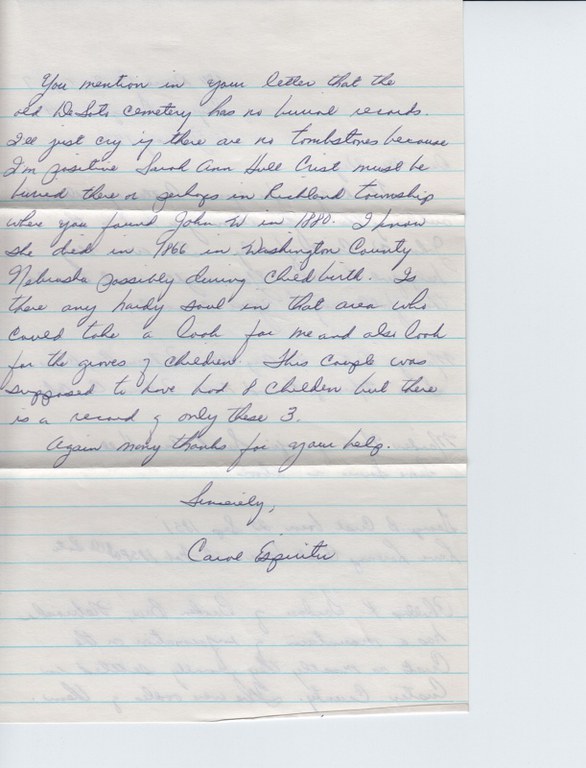 You mention in your letter that the
old DeSoto cemetery has no burial records.
I'll just cry if there are no tombstones because
I'm positive Sarah Ann Hull Crist must be
buried there or perhaps in Richland township
where you found John W in 1880. I know
she died in 1866 in Washington County
Nebraska possibly during childbirth. Is
there any hardy soul in that area who
could take a look for me and also look
for the graves of children. This couple was
supposed to have had 8 children but there
is a record of only these 3.
Again many thanks for your help.
Sincerely,
Carol Espiritu